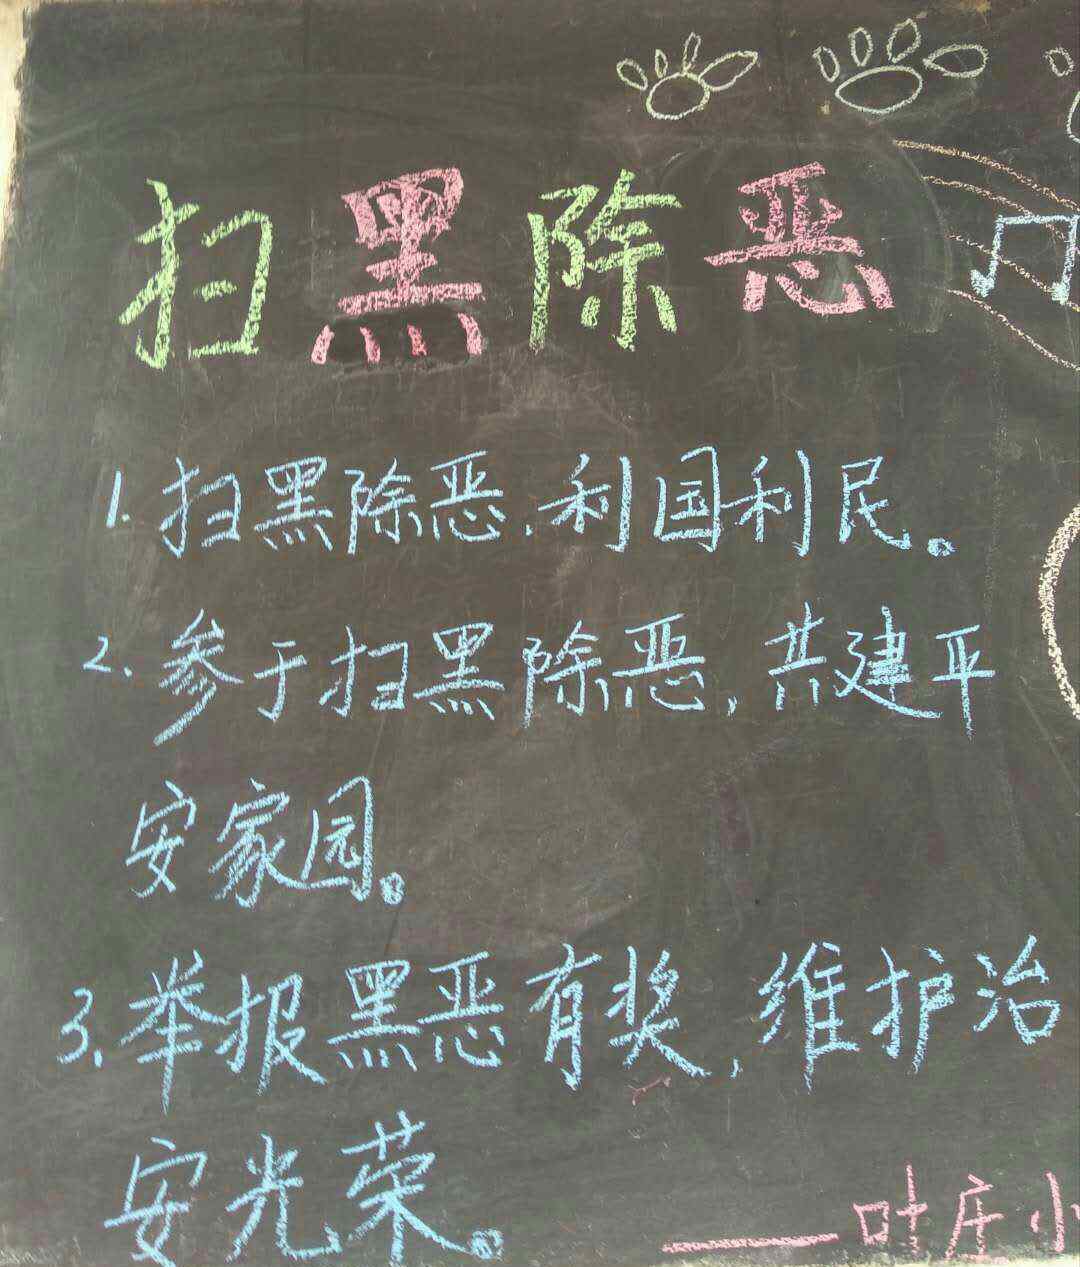 扫黑除恶
1.扫黑除恶,利国利民。
2.参于扫黑除恶,共建平
安家园。
3.举报黑恶有奖,维护治
安光荣。
——叶庄小